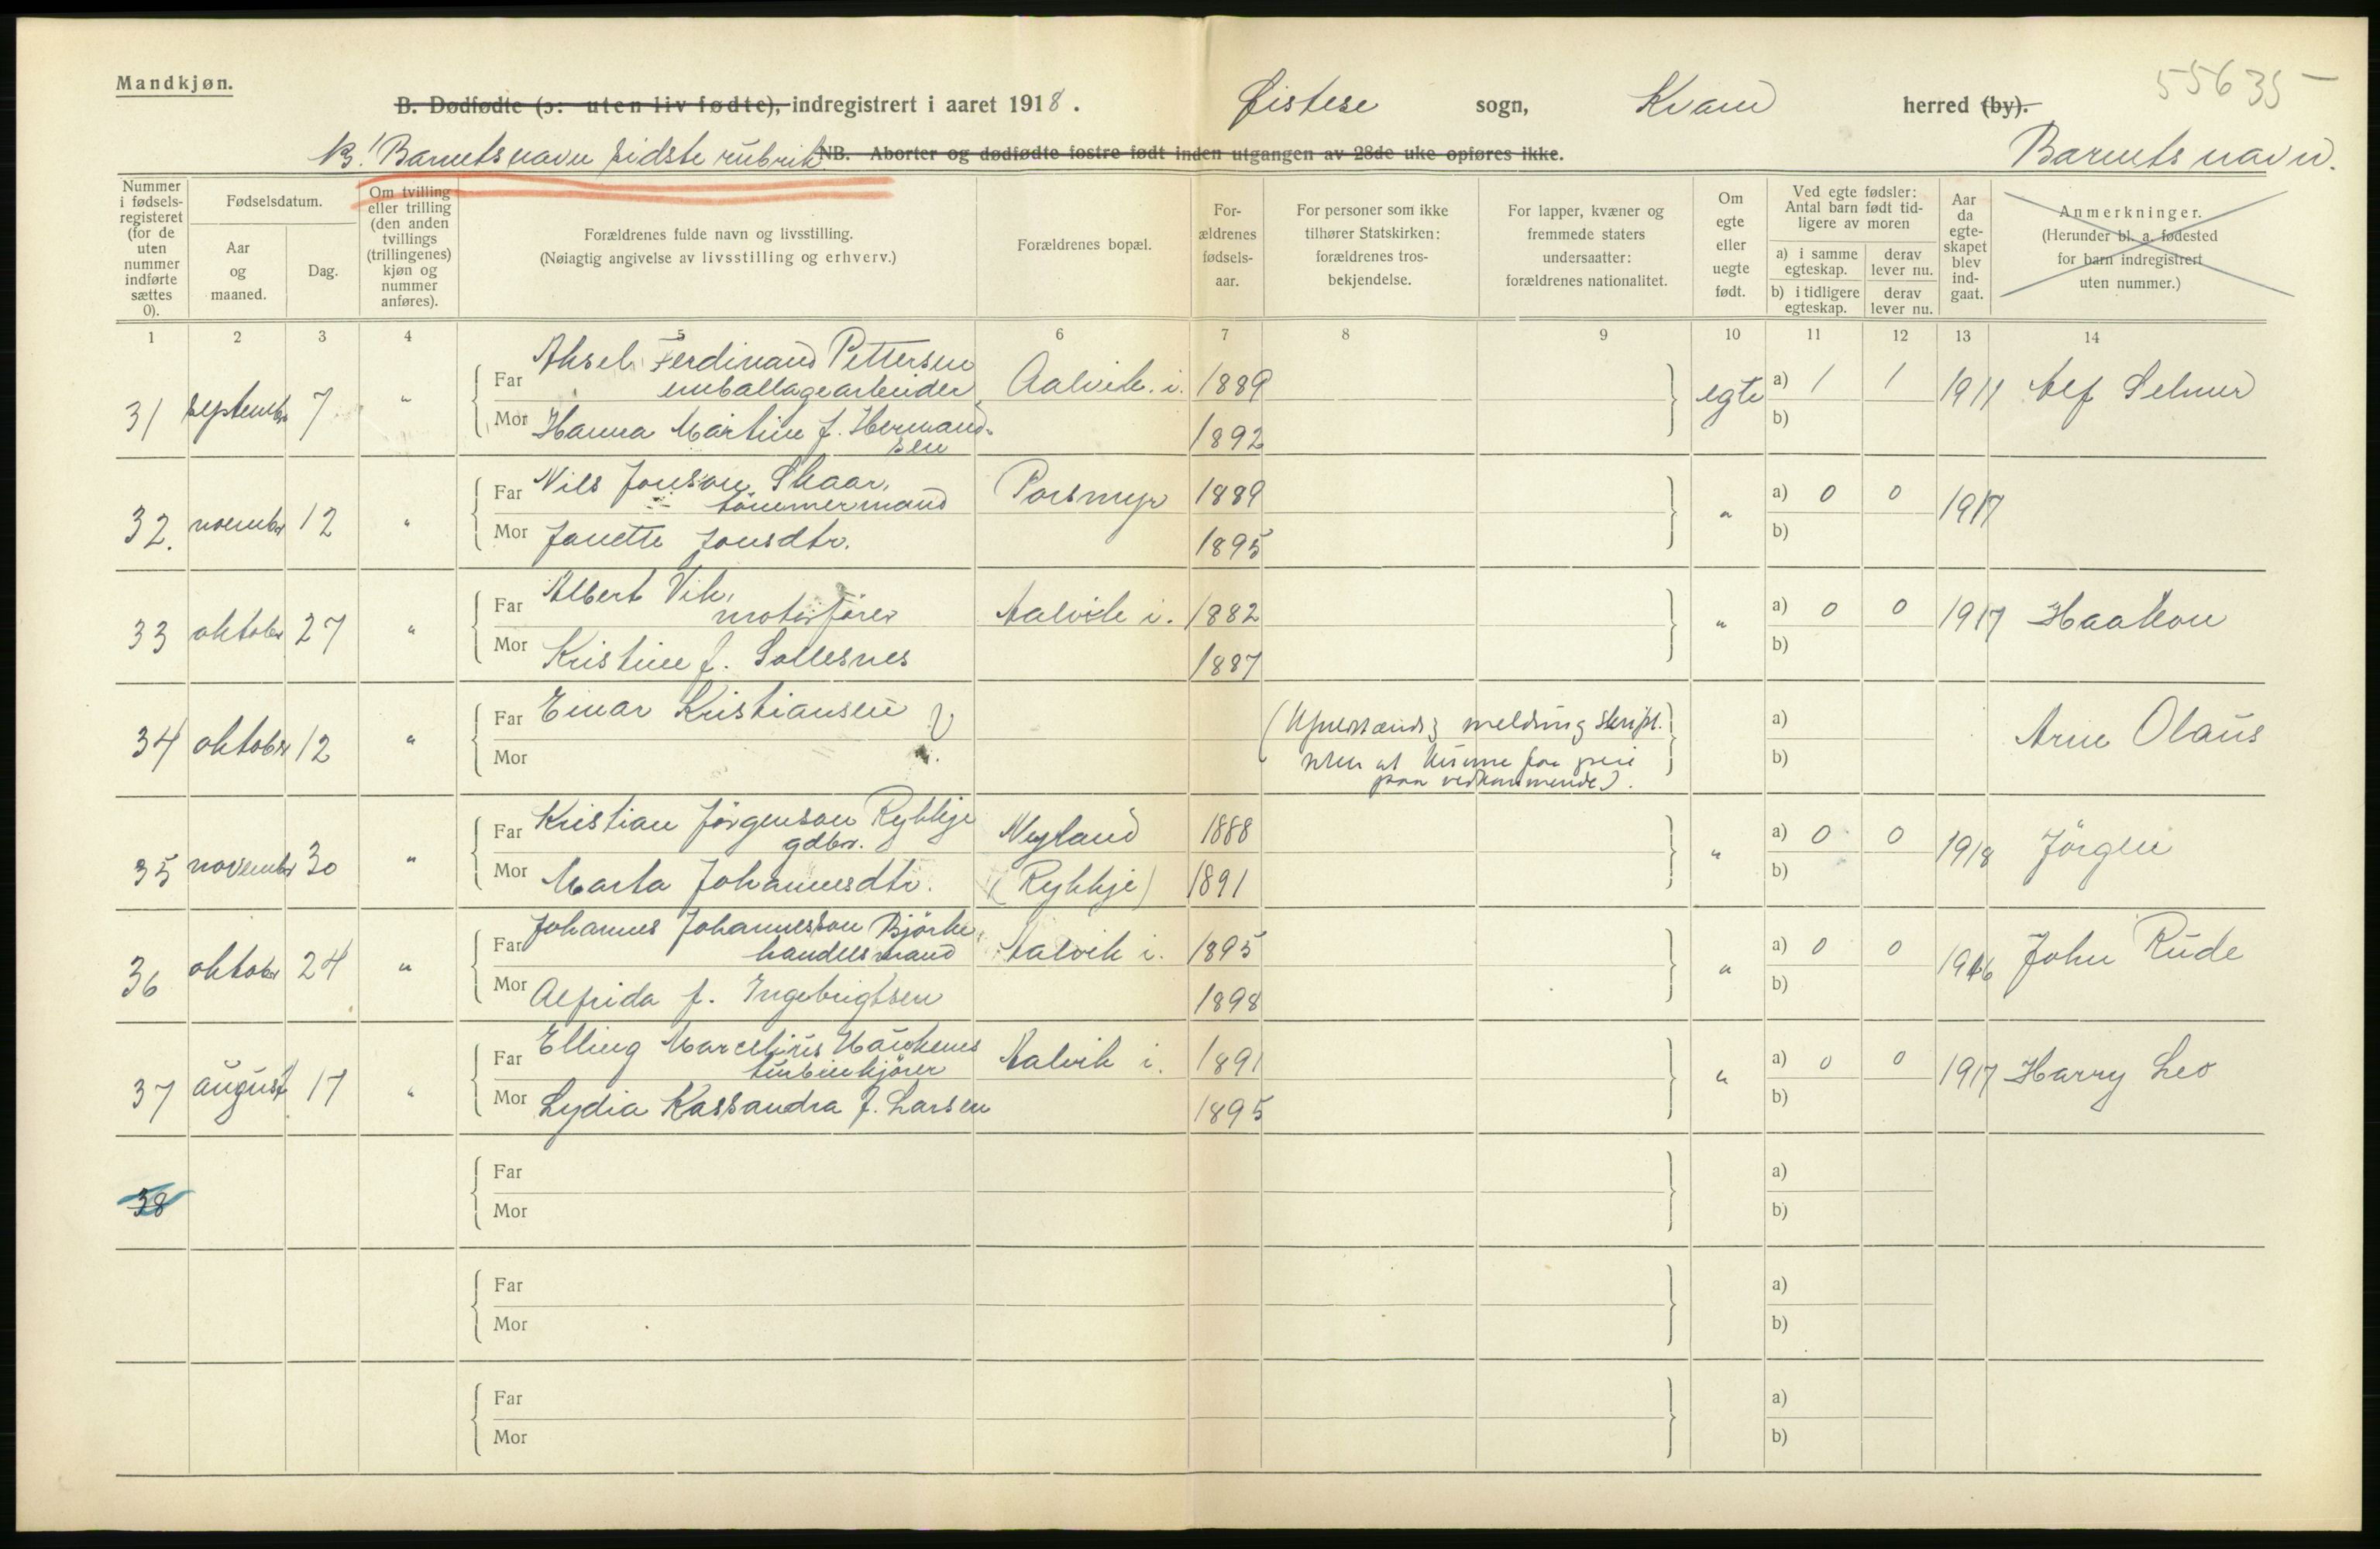 Mandkjøn.
55635
B. Dødfødte (ɔ: uten liv fødte), indregistrert i aaret 1918. Øistese sogn, Kvam herred (by).
NB! Barnets navn sidste rubrik. NB. Aborter og dødfødte fostre født inden utgangen av 28de uke opføres ikke. Barnets navn.
Nummer i fødsels-registeret (for de uten nummer indførte sættes 0).
Fødselsdatum.
Aar og maaned.
Dag.
Om tvilling eller trilling (den anden tvillings (trillingenes) kjøn og nummer anføres).
Forældrenes fulde navn og livsstilling.
(Nøiagtig angivelse av livsstilling og erhverv.)
Forældrenes bopæl.
For-ældrenes fødsels-aar.
For personer som ikke tilhører Statskirken: forældrenes tros-bekjendelse.
For lapper, kvæner og fremmede staters undersaatter: forældrenes nationalitet.
Om egte eller uegte født.
Ved egte fødsler: Antal barn født tid-ligere av moren
a) i samme egteskap. derav lever nu.
b) i tidligere egteskap. derav lever nu.
Aar da egte-skapet blev ind-gaat.
Anmerkninger.
(Herunder bl. a. fødested for barn indregistrert uten nummer.)
1 2 3 4 5 6 7 8 9 10 11 12 13 14
31 september 7 " Far Aksel Ferdinand Pettersen Aalvik i. 1889 egte a) 1 1 1911 Alf Selmer
emballagearbeider
Mor Hanna Martine f. Hermand- 1892 b)
sen
32. november 12 " Far Nils Jonson Skaar, Porsmyr 1889 " a) 0 0 1917
tömmermand
Mor Janette Jonsdtr. 1895 b)
33 oktober 27 " Far Albert Vik, Aalvik i. 1882 " a) 0 0 1917 Haakon
motorfører
Mor Kristine f. Sollesnes 1887 b)
34 oktober 12 " Far Einar Kristiansen (Ufuldstændig melding skript. a) Arne Olaus
Mor uten at kunne faa greie b)
paa vedkommende).
35 november 30 " Far Kristian Jörgenson Rykkje Nyland 1888 " a) 0 0 1918 Jörgen
gdbr.
Mor Marta Johannesdtr. (Rykkje) 1891 b)
36 oktober 24 " Far Johannes Johannesson Björke, Aalvik i. 1895 " a) 0 0 1916 John Rude
handelsmand
Mor Alfrida f. Ingebrigtsen 1898 b)
37 august 17 " Far Elling Marcelius Haukenes Aalvik i. 1891 " a) 0 0 1917 Harry Leo
turbinkjörer
Mor Lydia Kassandra f. Larsen 1895 b)
38 Far a)
Mor b)
Far a)
Mor b)
Far a)
Mor b)